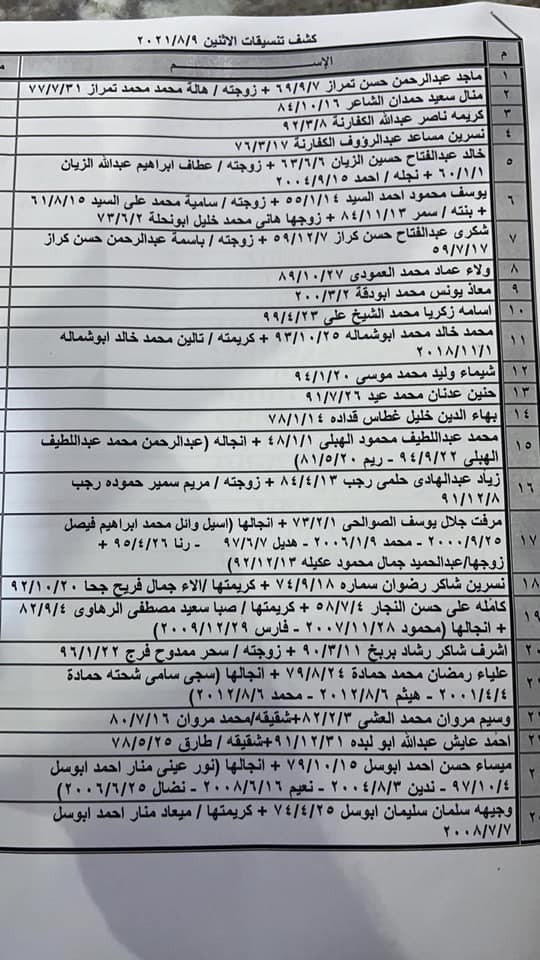 كشف تنسيقات الاثنين ٢٠٢١/٨/٩
م الإســـــــم م
١ ماجد عبدالرحمن حسن تمراز ٦٩/٩/٧ + زوجته / هالة محمد محمد تمراز ٧٧/٧/٣١
٢ منال سعيد حمدان الشاعر ٨٤/١٠/١٦
٣ كريمه ناصر عبدالله الكفارنة ٩٢/٣/٨
٤ نسرين مساعد عبدالرؤوف الكفارنة ٧٦/٣/١٧
٥ خالد عبدالفتاح حسين الزيان ٦٣/٦/٦ + زوجته / عطاف ابراهيم عبدالله الزيان
٦٠/١/١ + نجله / احمد ٢٠٠٤/٩/١٥
٦ يوسف محمود احمد السيد ٥٥/١/١٤ + زوجته / سامية محمد على السيد ٦١/٨/١٥
+ بنته / سمر ٨٤/١١/١٣ + زوجها هانى محمد خليل ابونحلة ٧٣/٦/٢
٧ شكرى عبدالفتاح حسن كراز ٥٩/١٢/٧ + زوجته / باسمة عبدالرحمن حسن كراز
٥٩/٧/١٧
٨ ولاء عماد محمد العمودى ٨٩/١٠/٢٧
٩ معاذ يونس محمد ابودقة ٢٠٠/٣/٢
١٠ اسامه زكريا محمد الشيخ على ٩٩/٤/٢٣
١١ محمد خالد محمد ابوشماله ٩٣/١٠/٢٥ + كريمته / تالين محمد خالد ابوشماله
٢٠١٨/١١/١
١٢ شيماء وليد محمد موسى ٩٤/١/٢٠
١٣ حنين عدنان محمد عيد ٩١/٧/٢٦
١٤ بهاء الدين خليل غطاس قداده ٧٨/١/١٤
١٥ محمد عبداللطيف محمود الهبلى ٤٨/١/١ + انجاله (عبدالرحمن محمد عبداللطيف
الهبلى ٩٤/٩/٢٢ - ريم ٨١/٥/٢٠)
١٦ زياد عبدالهادى حلمى رجب ٨٤/٤/١٣ + زوجته / مريم سمير حموده رجب
٩١/١٢/٨
١٧ مرفت جلال يوسف الصوالحى ٧٣/٢/١ + انجالها (اسيل وائل محمد ابراهيم فيصل
٢٠٠٠/٩/٢٥ - محمد ٢٠٠٦/١/٩ - هديل ٩٧/٦/٧ - رنا ٩٥/٤/٢٦ +
زوجها/عبدالحميد جمال محمود عكيله ٩٢/١٢/١٣)
١٨ نسرين شاكر رضوان سماره ٧٤/٩/١٨ + كريمتها /الاء جمال فريح جحا ٩٢/١٠/٢٠
١٩ كامله على حسن النجار ٥٨/٧/٤ + كريمتها / صبا سعيد مصطفى الرهاوى ٨٢/٩/٤
+ انجالها (محمود ٢٠٠٧/١١/٢٨ - فارس ٢٠٠٩/١٢/٢٩)
اشرف شاكر رشاد بربخ ٩٠/٣/١١ + زوجته / سحر ممدوح فرج ٩٦/١/٢٢
علياء رمضان محمد حمادة ٧٩/٨/٢٤ + انجالها (سجى سامى شحته حمادة
٢٠٠١/٤/٤ - هيثم ٢٠١٢/٨/٦ - محمد ٢٠١٢/٨/٦)
وسيم مروان محمد العشي ٨٢/٢/٣+شقيقه/محمد مروان ٨٠/٧/١٦
احمد عايش عبدالله ابو لبده ٩١/١٢/٣١+شقيقه / طارق ٧٨/٥/٢٥
ميساء حسن احمد ابوسل ٧٩/١٠/١٥ + انجالها (نور عينى منار احمد ابوسل
٩٧/١٠/٤ - ندين ٢٠٠٤/٨/٣ - نعيم ٢٠٠٨/٦/١٦ - نضال ٢٠٠٦/٦/٢٥)
وجيهه سلمان سليمان ابوسل ٧٤/٤/٢٥ + كريمتها / ميعاد منار احمد ابوسل
٢٠٠٨/٧/٧